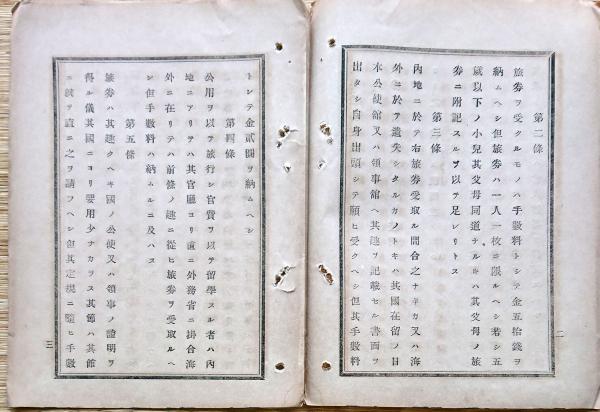 第二條
旅券ヲ受クルモノハ手數料トシテ金五拾錢ヲ
納ムヘシ但旅券ハ一人一枚ニ限ルヘシ若シ五
歲以下ノ小兒其父母同道ナルトキハ其父母ノ旅
券ニ附記スルヲ以テ足レリトス
第三條
內地ニ於テ右旅券受取ル間合之ナキカ又ハ海
外ニ於テ遺失シタルカノトキハ其國在留ノ日
本公使館又ハ領事館ヘ其趣ヲ記載セル書面ヲ
出タシ自身出頭シテ願ヒ受クヘシ但其手數料
二
トシテ金貳圓ヲ納ムヘシ
第四條
公用ヲ以テ旅行シ官費ヲ以テ留學スル者ハ內
地ニアリテハ其官廳ヨリ直ニ外務省ニ掛合海
外ニ在リテハ前條ノ趣ニ從ヒ旅券ヲ受取ルヘ
シ但手數料ハ納ムルニ及ハス
第五條
旅券ハ其趣クヘキ國ノ公使又ハ領事ノ證明ヲ
得ル儀其國ニヨリ要用少ナカラス其節ハ其館
ニ就テ直ニ之ヲ請フヘシ但其定規ニ隨ヒ手數
三